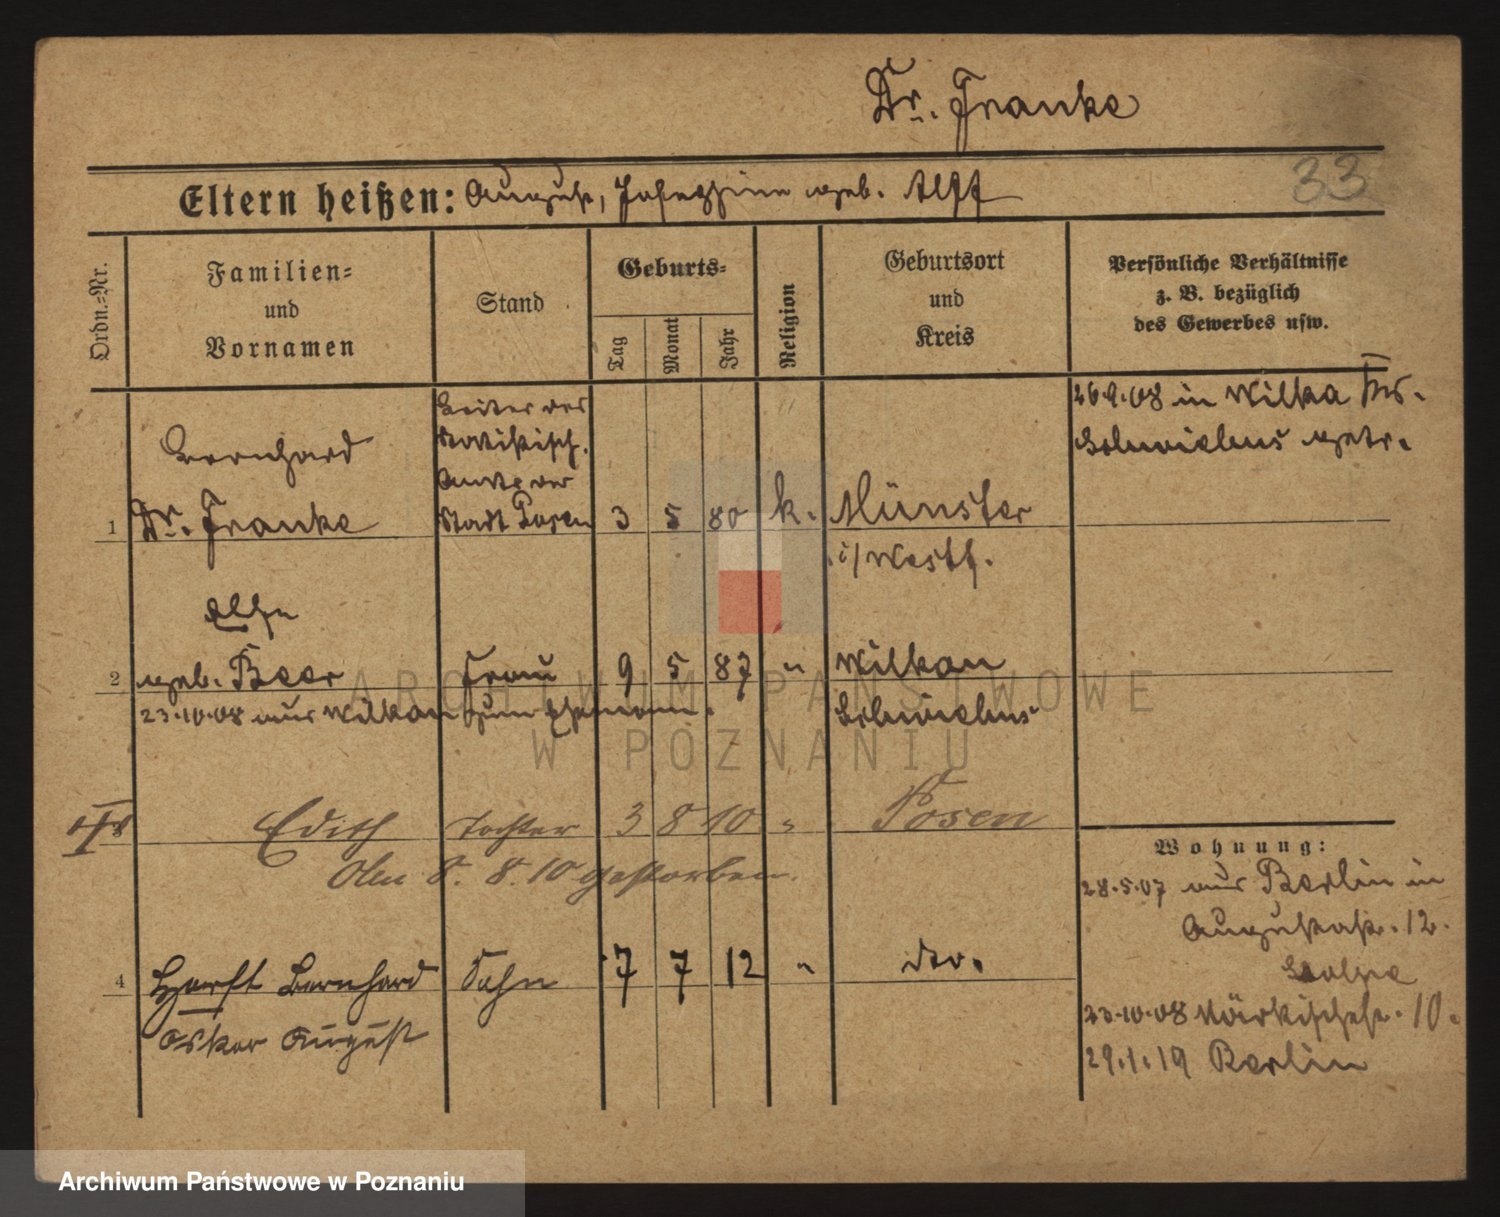 Dr. Franke
33
Eltern heißen: August, Josephine geb. Alff
Ordn.-Nr.
Familien-
und
Vornamen
Stand
Geburts-
Tag
Monat
Jahr
Religion
Geburtsort
und
Kreis
Persönliche Verhältnisse
z. B. bezüglich
des Gewerbes usw.
26.9.08 in Wilka
getr.
Bernhard
Leiter des
Statistisch.
Amts der
1 Dr. Franke Stadt Posen 3 5 80 k. Münster
i/Westf.
Else
2 geb. Beer Frau 9 5 87 " Wilkau
23.10.08 aus Wilkau zum Ehemann.
3 Edith Tochter 3 8 10 " Posen
Am 8. 8. 10 gestorben.
4 Horst Bernhard Sohn 7 7 12 " dto.
Oskar August
Wohnung:
28.5.07 aus Berlin in
Augustastr. 12.
23.10.08 Märkischestr. 10.
29.1.19 Berlin
ARCHIWUM PAŃSTWOWE
W POZNANIU
Archiwum Państwowe w Poznaniu